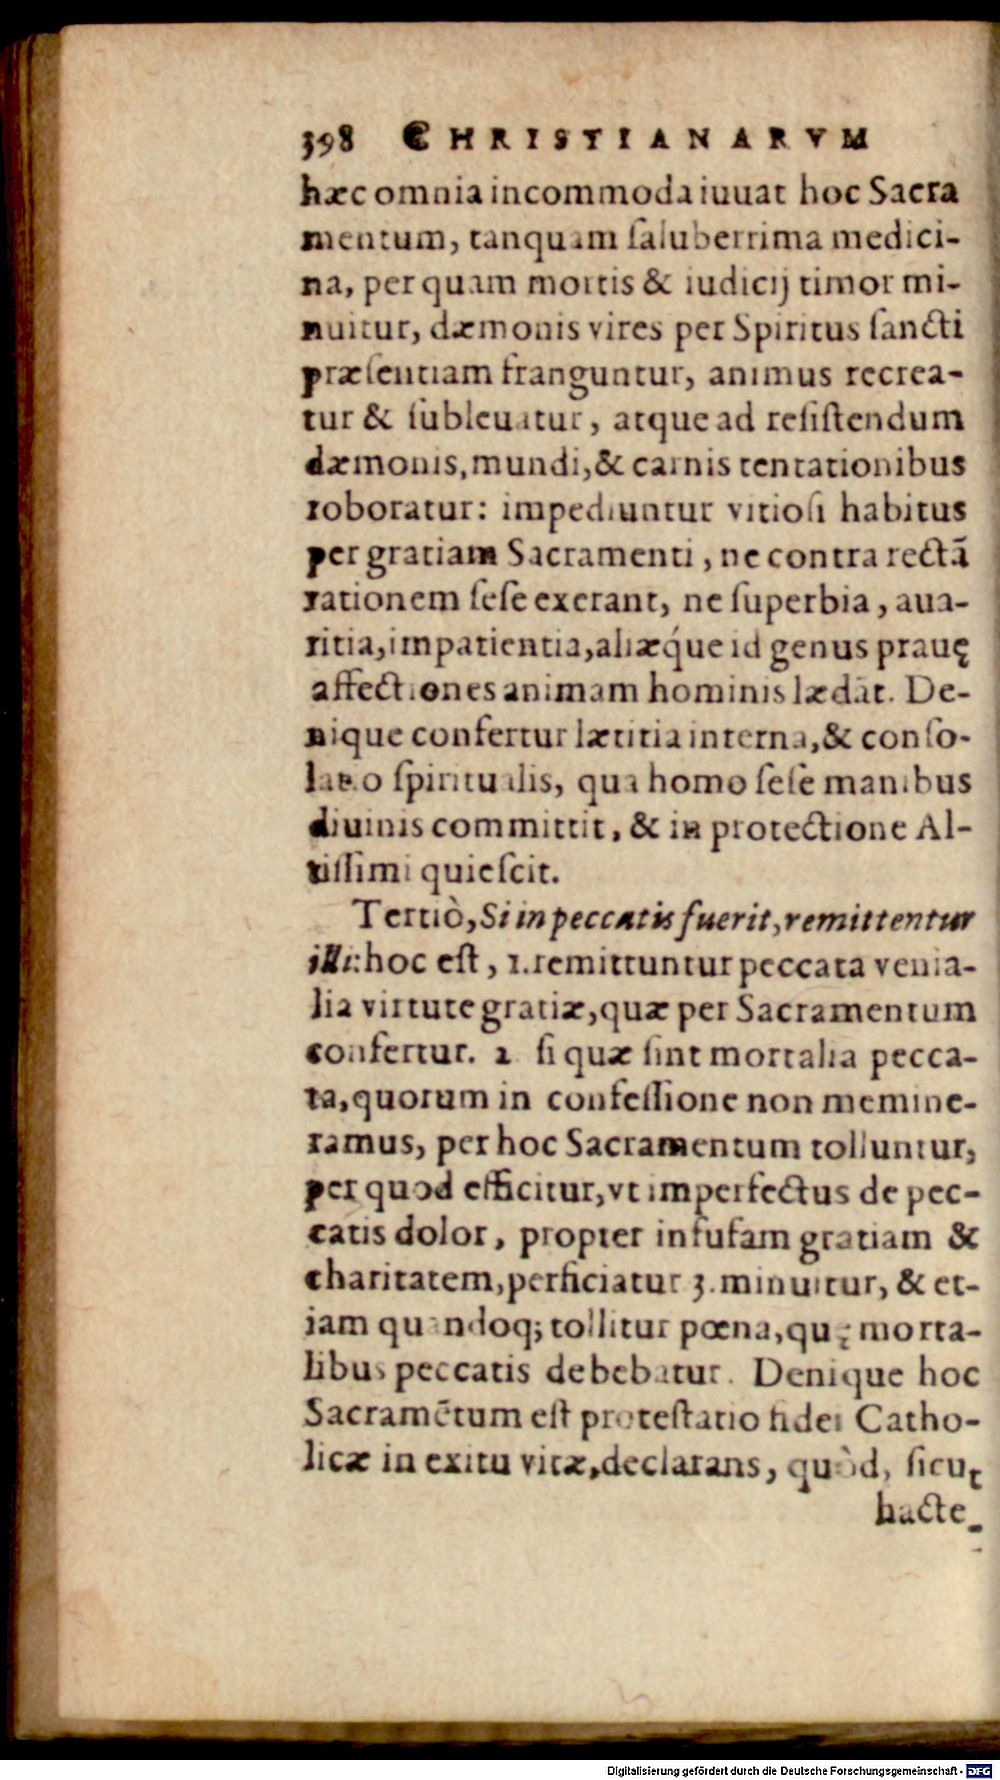 398 CHRISTIANARVM
hæc omnia incommoda iuuat hoc Sacra
mentum, tanquam ſaluberrima medici-
na, per quam mortis & iudicij timor mi-
nuitur, dæmonis vires per Spiritus ſancti
præſentiam franguntur, animus recrea-
tur & ſubleuatur, atque ad reſiſtendum
dæmonis, mundi, & carnis tentationibus
roboratur: impediuntur vitioſi habitus
per gratiam Sacramenti, ne contra rectā
rationem ſeſe exerant, ne ſuperbia, aua-
ritia, impatientia, aliæq́ue id genus prauę
affectiones animam hominis lædāt. De-
nique confertur lætitia interna, & conſo-
latio ſpiritualis, qua homo ſeſe manibus
diuinis committit, & in protectione Al-
tiſſimi quieſcit.
Tertiò, Si in peccatis fuerit, remittentur
illi: hoc eſt, 1. remittuntur peccata venia-
lia virtute gratiæ, quæ per Sacramentum
confertur. 2 ſi quæ ſint mortalia pecca-
ta, quorum in confeſſione non memine-
ramus, per hoc Sacramentum tolluntur,
per quod efficitur, vt imperfectus de pec-
catis dolor, propter infuſam gratiam &
charitatem, perficiatur 3. minuitur, & et-
iam quandoq; tollitur pœna, quę morta-
libus peccatis debebatur. Denique hoc
Sacramētum eſt proteſtatio fidei Catho-
licæ in exitu vitæ, declarans, quòd, ſicut
hacte-
Digitalisierung gefördert durch die Deutsche Forschungsgemeinschaft - DFG